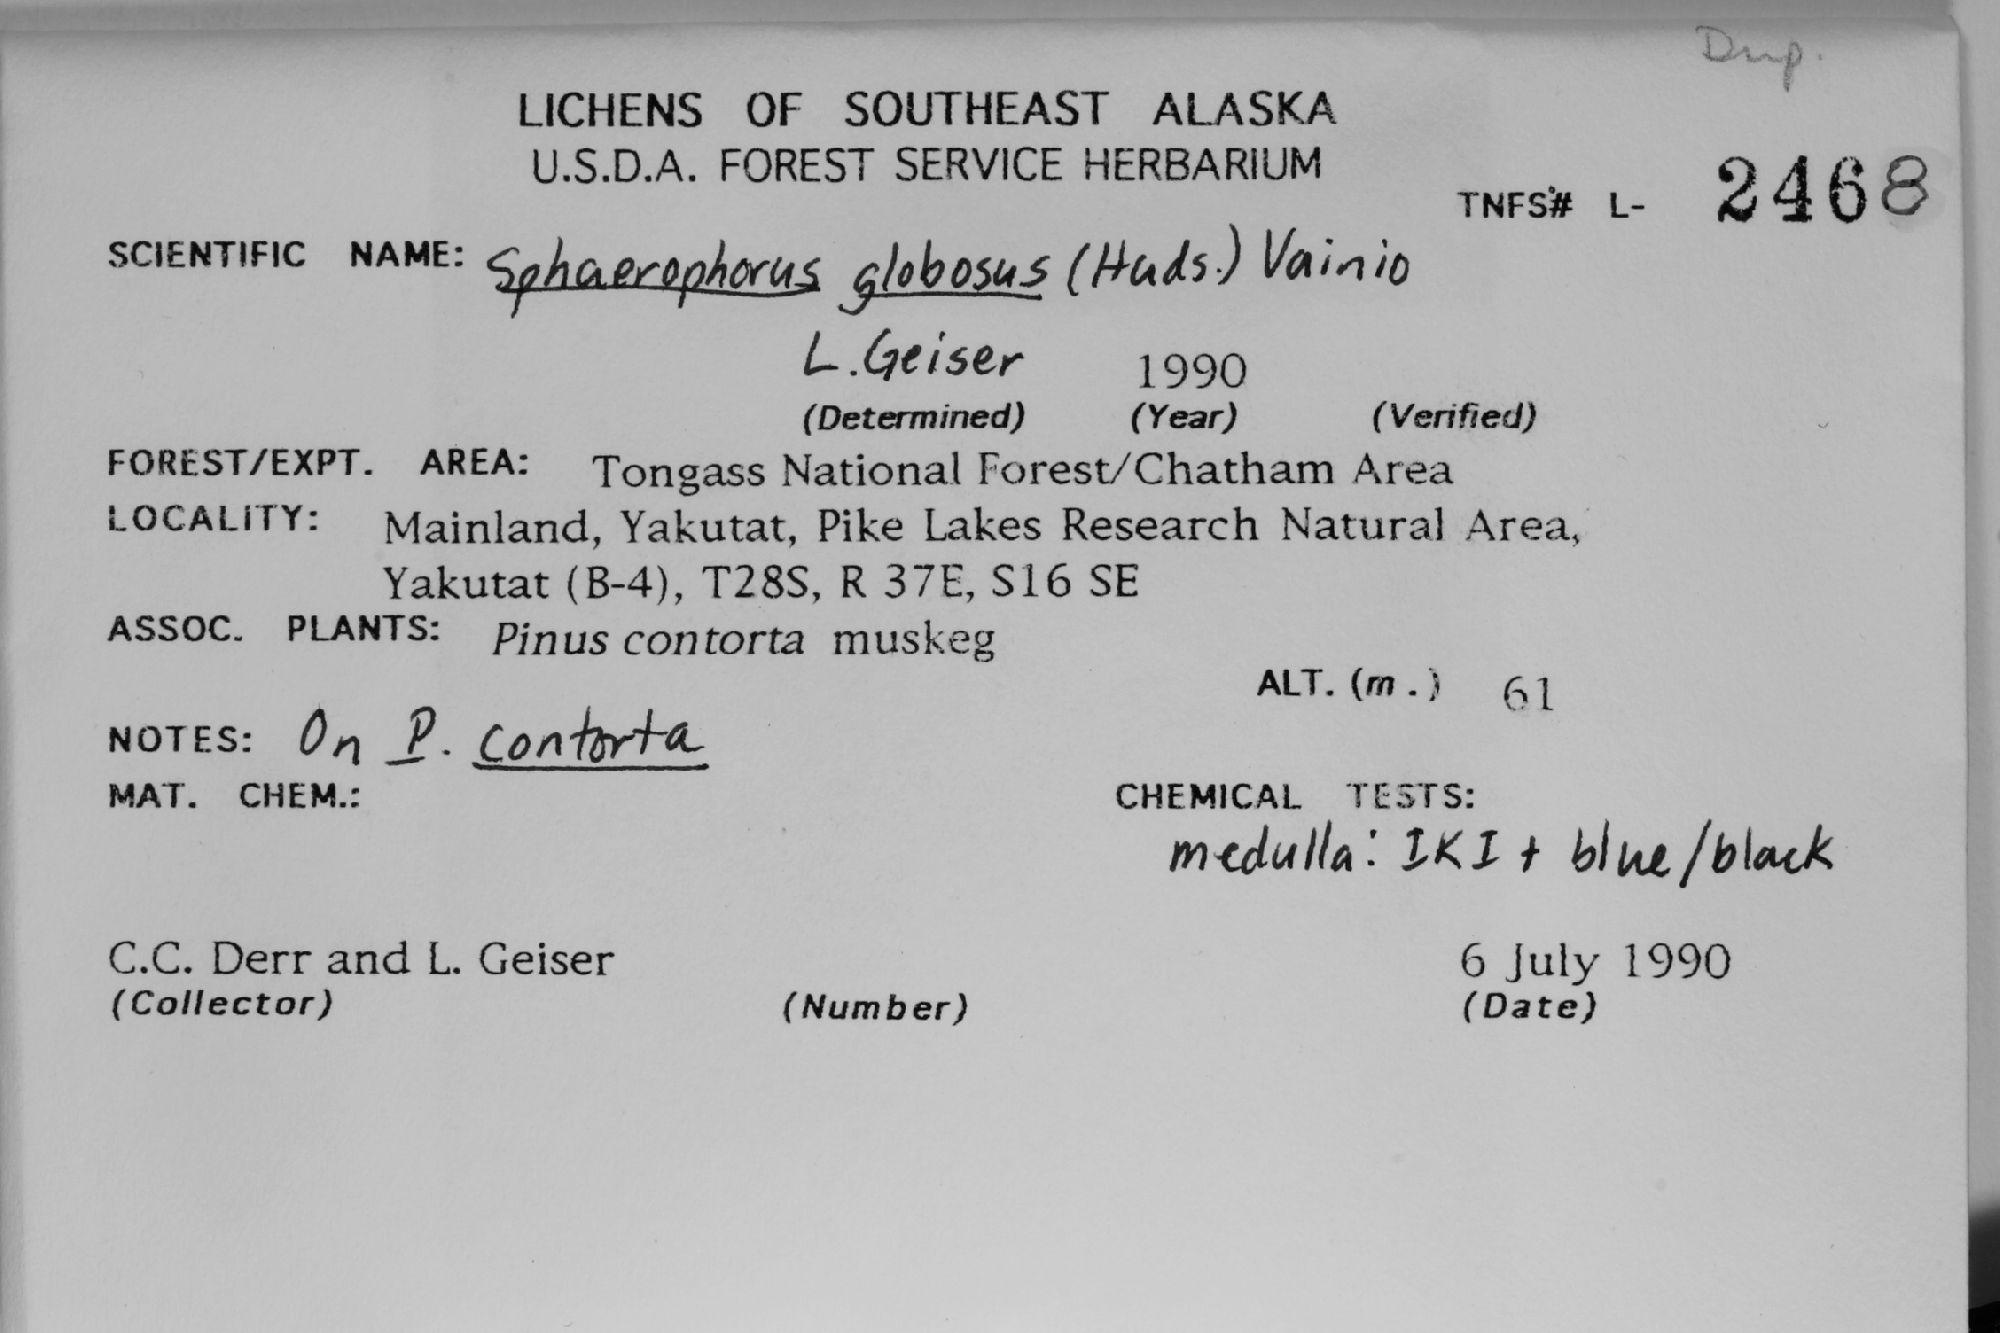 Dup.
LICHENS OF SOUTHEAST ALASKA
U.S.D.A. FOREST SERVICE HERBARIUM
TNFS# L- 2468
SCIENTIFIC NAME: Sphaerophorus globosus (Huds.) Vainio
L. Geiser 1990
(Determined) (Year) (Verified)
FOREST/EXPT. AREA: Tongass National Forest/Chatham Area
LOCALITY: Mainland, Yakutat, Pike Lakes Research Natural Area,
Yakutat (B-4), T28S, R 37E, S16 SE
ASSOC. PLANTS: Pinus contorta muskeg
ALT. (m.) 61
NOTES: On P. contorta
MAT. CHEM.: CHEMICAL TESTS:
medulla: IKI + blue/black
C.C. Derr and L. Geiser 6 July 1990
(Collector) (Number) (Date)